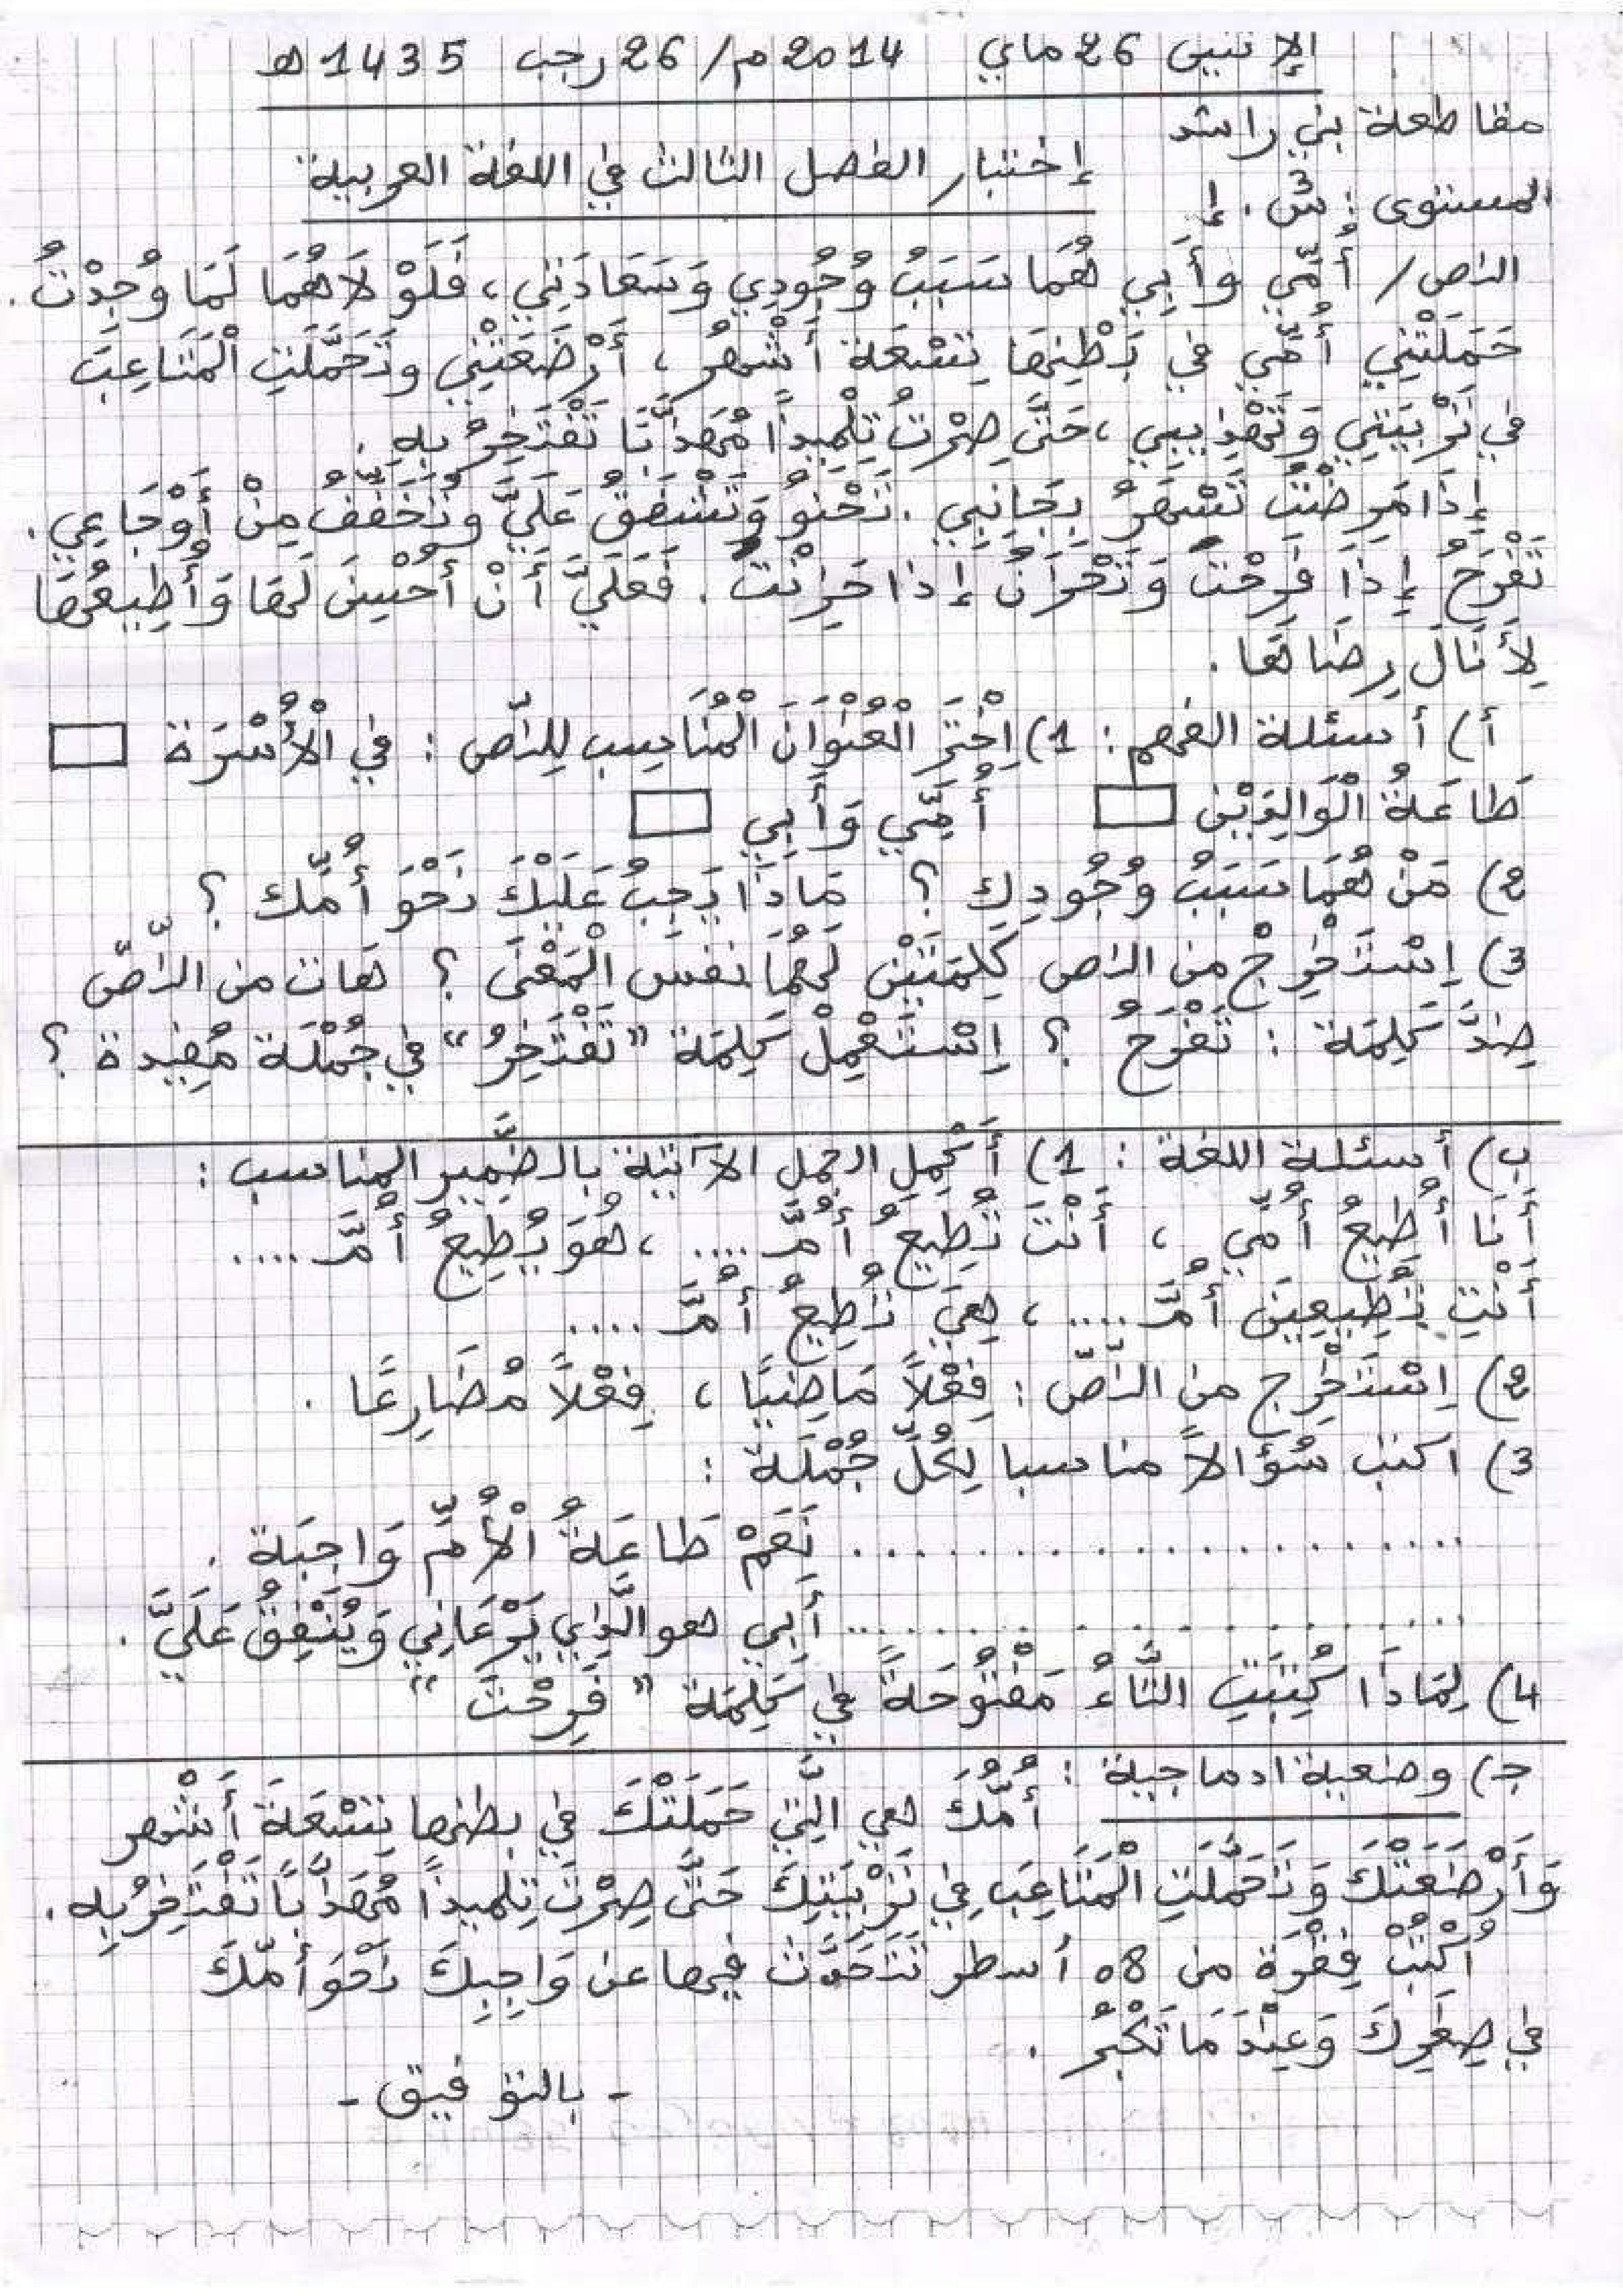 الإثنين 26 ماي 2014 م/ 26 رجب 1435 هـ
مقاطعة بني راشد
إختبار الفصل الثالث في اللغة العربية
المستوى : 3 س . إ
النص/ أُمِّي وَأَبِي هُمَا سَبَبُ وُجُودِي وَسَعَادَتِي ، فَلَوْ لَاهُمَا لَمَا وُجِدْتُ .
حَمَلَتْنِي أُمِّي فِي بَطْنِهَا تِسْعَة أَشْهُر ، أَرْضَعَتْنِي وتَحَمَّلَتِ الْمَتَاعِبَ
فِي تَرْبِيَتِي وَتَهْذِيبِي ، حَتَّى صِرْتُ تِلْمِيذاً مُهَذَّبًا تَفْتَخِرُ بِهِ .
إِذَا مَرِضْتُ تَسْهَرُ بِجَانِبِي . تَحْنُو وَتُشْفِقُ عَلَيَّ وتُخَفِّفُ مِنْ أَوْجَاعِي .
تَفْرَحُ إِذَا فَرِحْتُ وَتَحْزَنُ إِذَا حَزِنْتُ . فَعَلَيَّ أَنْ أُحْسِنَ لَهَا وَأُطِيعُهَا
لِأَنَالَ رِضَاهَا .
أ) أسئلة الفهم : 1) اِخْتَرِ الْعُنْوَانَ الْمُنَاسِب لِلنَّص : فِي الْأُسْرَة
طَاعَةُ الْوَالِدَيْن أُمِّي وَأَبِي
2) مَنْ هُمَا سَبَبُ وُجُودِك ؟ مَاذَا يَجِبُ عَلَيْكَ نَحْوَ أُمِّك ؟
3) اِسْتَخْرِجْ من النص كَلِمَتَيْن لَهُمَا نفس الْمَعْنَى ؟ هات من النَّصّ
ضِدَّ كَلِمَة : تَفْرَحُ ؟ اِسْتَعْمِلْ كَلِمَة "تَفْتَخِرُ" فِي جُمْلَة مُفِيدة ؟
ب) أسئلة اللغة : 1) أَكْمِل الجمل الآتية بالضَّمِير المناسب :
أَنَا أُطِيعُ أُمِّي ، أَنْتَ تُطِيعُ أُمَّـ .... ، هُوَ يُطِيعُ أُمَّـ ....
أَنْتِ تُطِيعِينَ أُمَّـ .... ، هِيَ تُطِيعُ أُمَّـ ....
2) اِسْتَخْرِج من النَّصّ : فِعْلاً مَاضِيًا ، فِعْلاً مُضَارِعًا .
3) اكتب سُؤَالاً مناسبا لِكُلِّ جُمْلَة :
...................... نَعَمْ طَاعَةُ الْأُمِّ وَاجِبَة .
...................... أَبِي هو الَّذِي يَرْعَانِي وَيُنْفِقُ عَلَيَّ .
4) لِمَاذَا كُتِبَتِ التَّاءُ مَفْتُوحَةً فِي كَلِمَة " فَرِحْتَ "
ج) وضعية ادماجية : أُمُّكَ هي الَّتِي حَمَلَتْكَ في بطنها تِسْعَةَ أَشْهر
وَأَرْضَعَتْكَ وَتَحَمَّلَتِ الْمَتَاعِبَ فِي تَرْبِيَتِكَ حَتَّى صِرْتَ تِلميذاً مُهَذَّبًا تَفْتَخِرُ بِه .
اُكْتُبْ فِقْرَة من 08 أسطر تَتَحَدَّث فيها عن وَاجِبِكَ نَحْوَ أُمِّكَ
في صِغَرِكَ وَعِنْدَ مَا تَكْبُرُ .
- بالتوفيق -